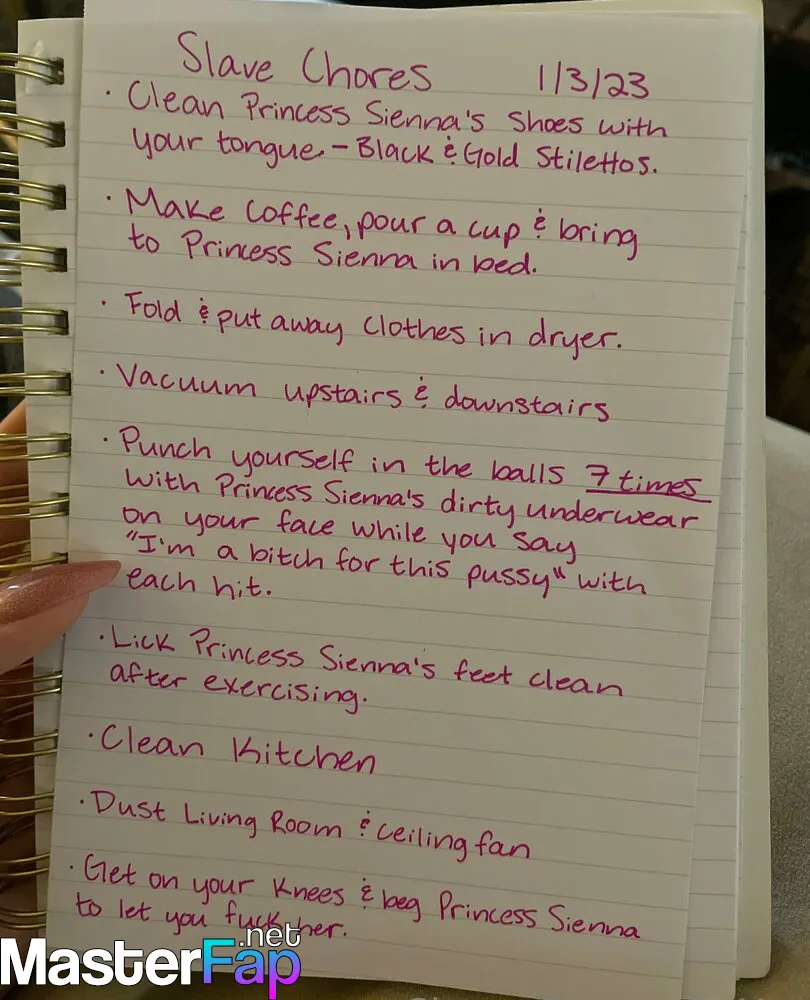 Slave Chores 1/3/23
· Clean Princess Sienna's Shoes with
your tongue. - Black & Gold Stilettos.
· Make Coffee, pour a cup & bring
to Princess Sienna in bed.
· Fold & put away clothes in dryer.
· Vacuum upstairs & downstairs
· Punch yourself in the balls 7 times
with Princess Sienna's dirty underwear
on your face while you say
"I'm a bitch for this pussy" with
each hit.
· Lick Princess Sienna's feet clean
after exercising.
· Clean Kitchen
· Dust Living Room & ceiling fan
· Get on your Knees & beg Princess Sienna
to let you fuck her.
MasterFap.net